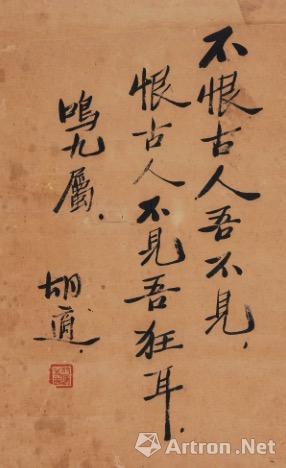 不恨古人吾不見，
恨古人不見吾狂耳．
鳴九屬．
胡適．
Artron.Net